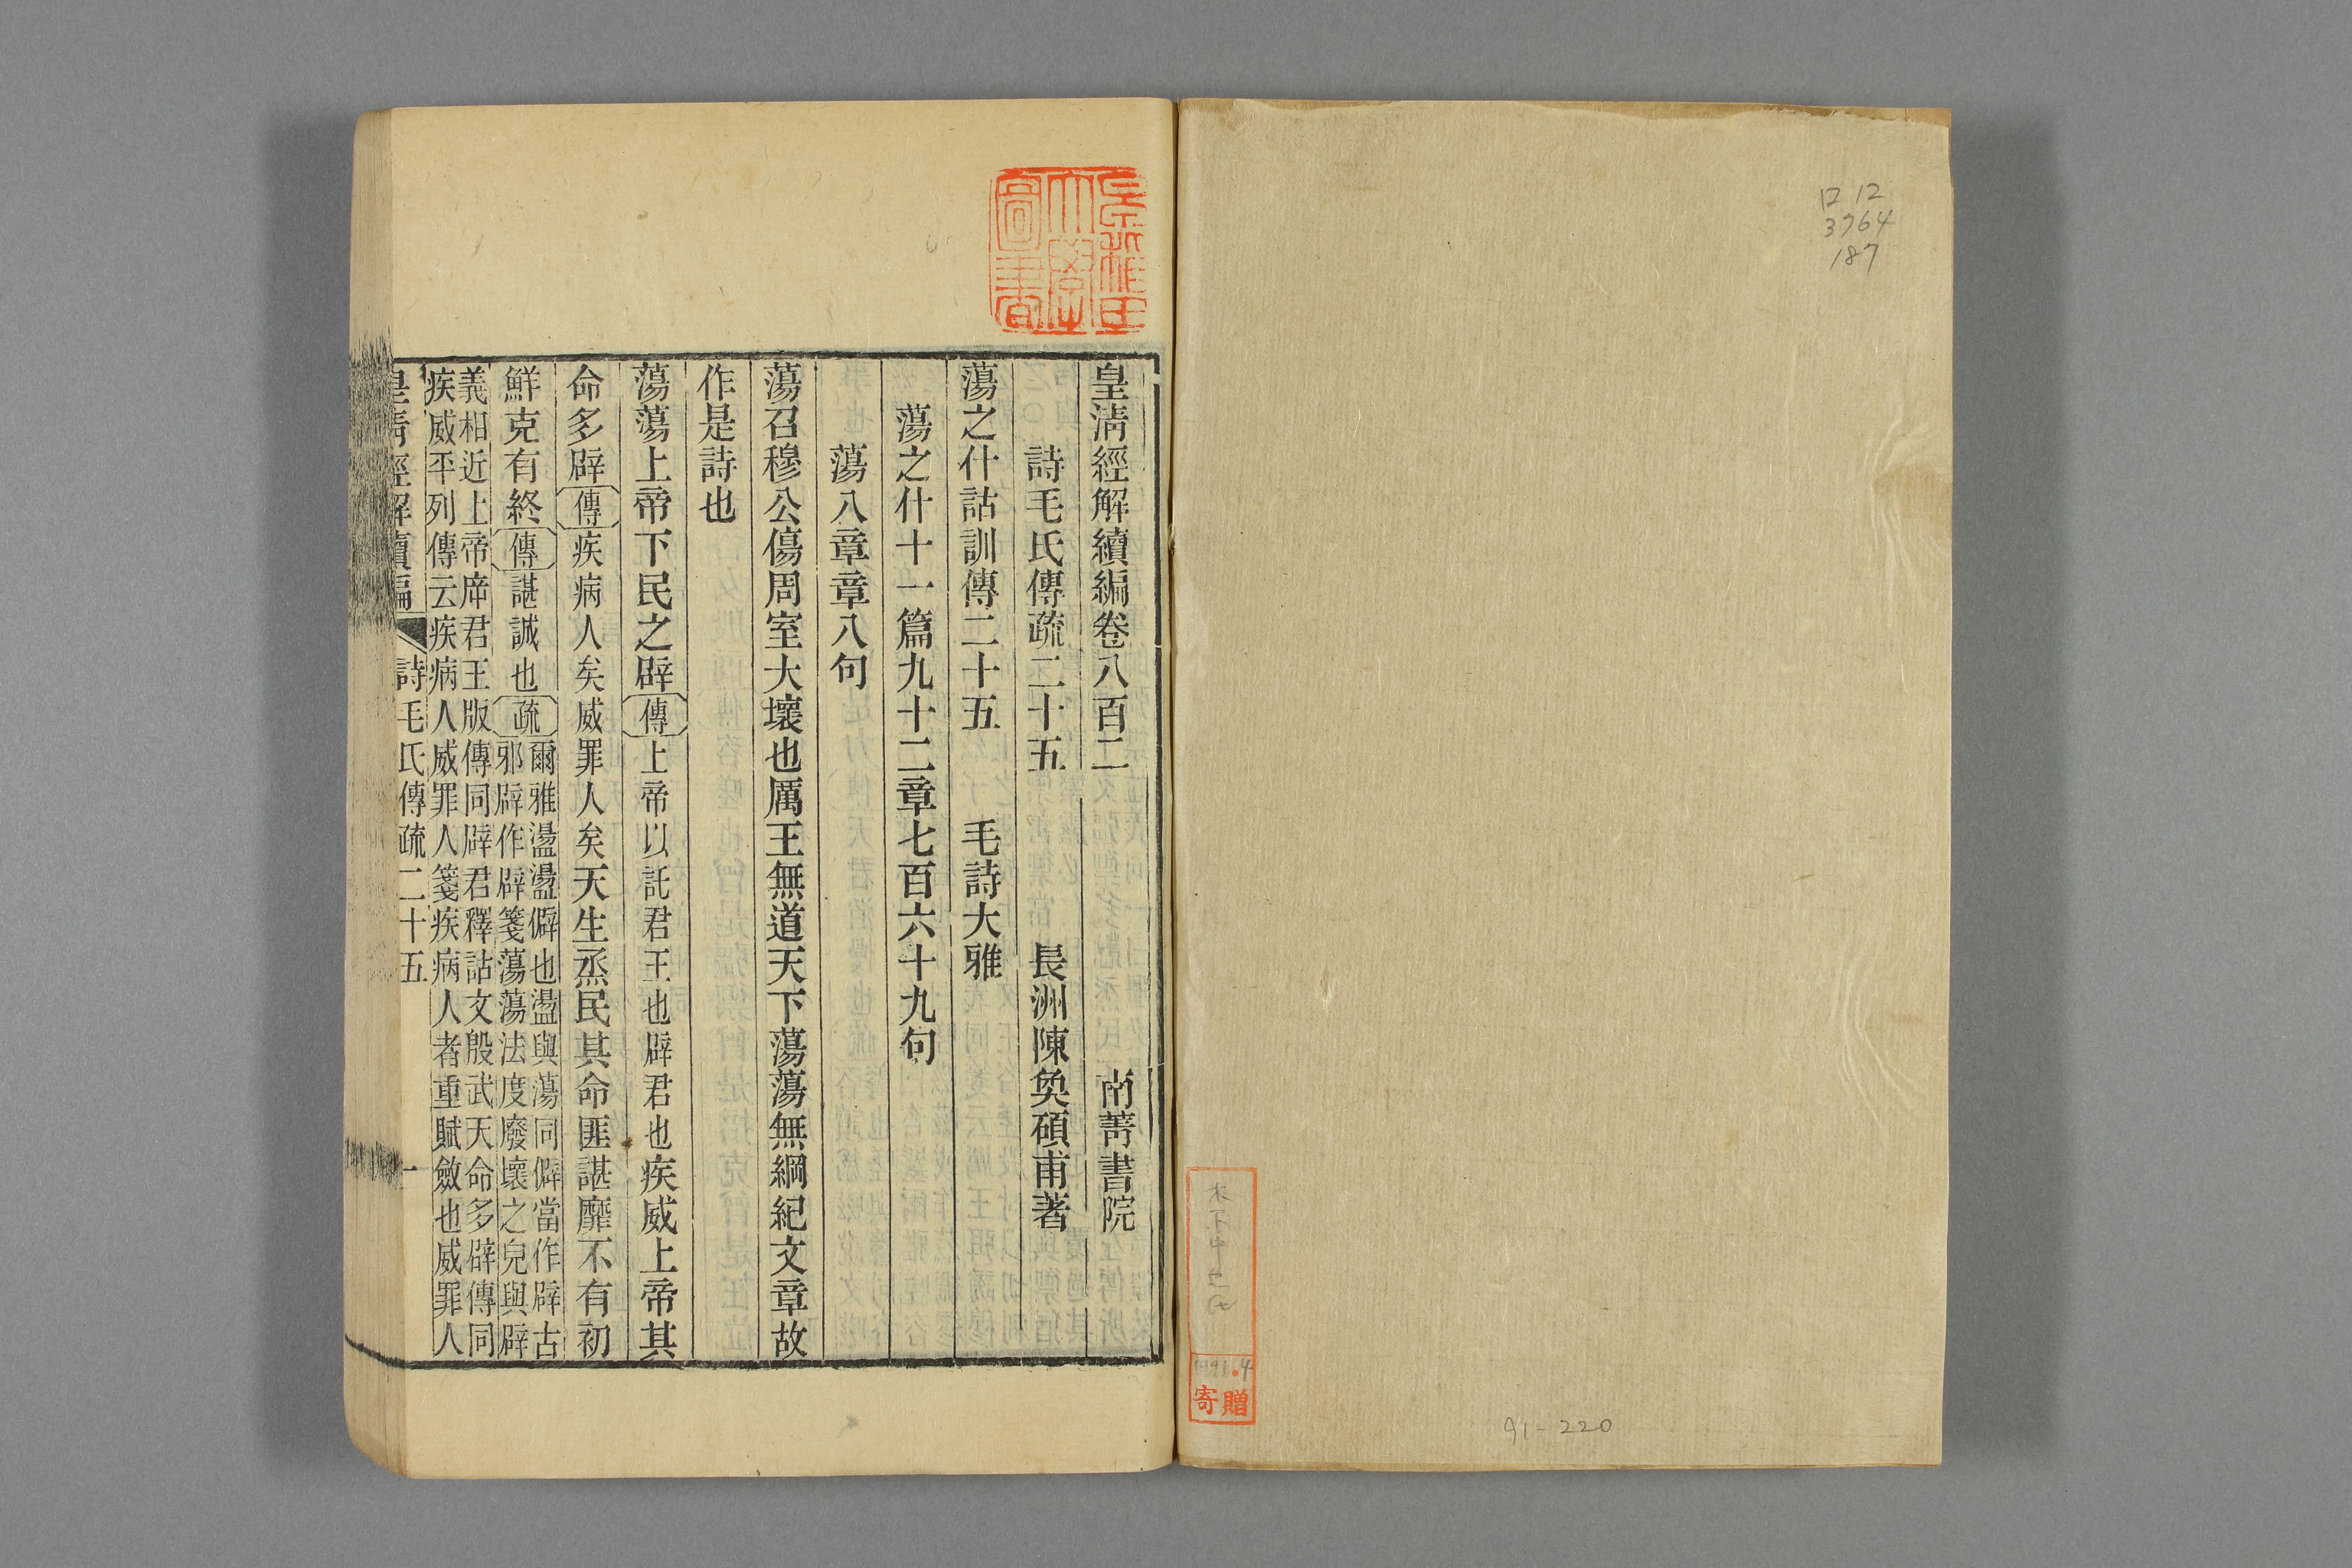 ロ 12
3764
187
1991.4
寄贈
91-220
早稲田
大學
圖書
皇清經解續編卷八百二　南菁書院
詩毛氏傳疏二十五　長洲陳奐碩甫著
蕩之什詁訓傳二十五　毛詩大雅
蕩之什十一篇九十二章七百六十九句
蕩八章章八句
蕩召穆公傷周室大壞也厲王無道天下蕩蕩無綱紀文章故
作是詩也
蕩蕩上帝下民之辟傳上帝以託君王也辟君也疾威上帝其
命多辟傳疾病人矣威罪人矣天生烝民其命匪諶靡不有初
鮮克有終傳諶誠也疏爾雅盪盪僻也盪與蕩同僻當作辟古
邪辟作辟箋蕩蕩法度廢壞之皃與辟
義相近上帝庠君王版傳同辟君釋詁文殷武天命多辟傳同
疾威平列傳云疾病人威罪人箋疾病人者重賦斂也威罪人
皇清經解續編　詩毛氏傳疏二十五　一